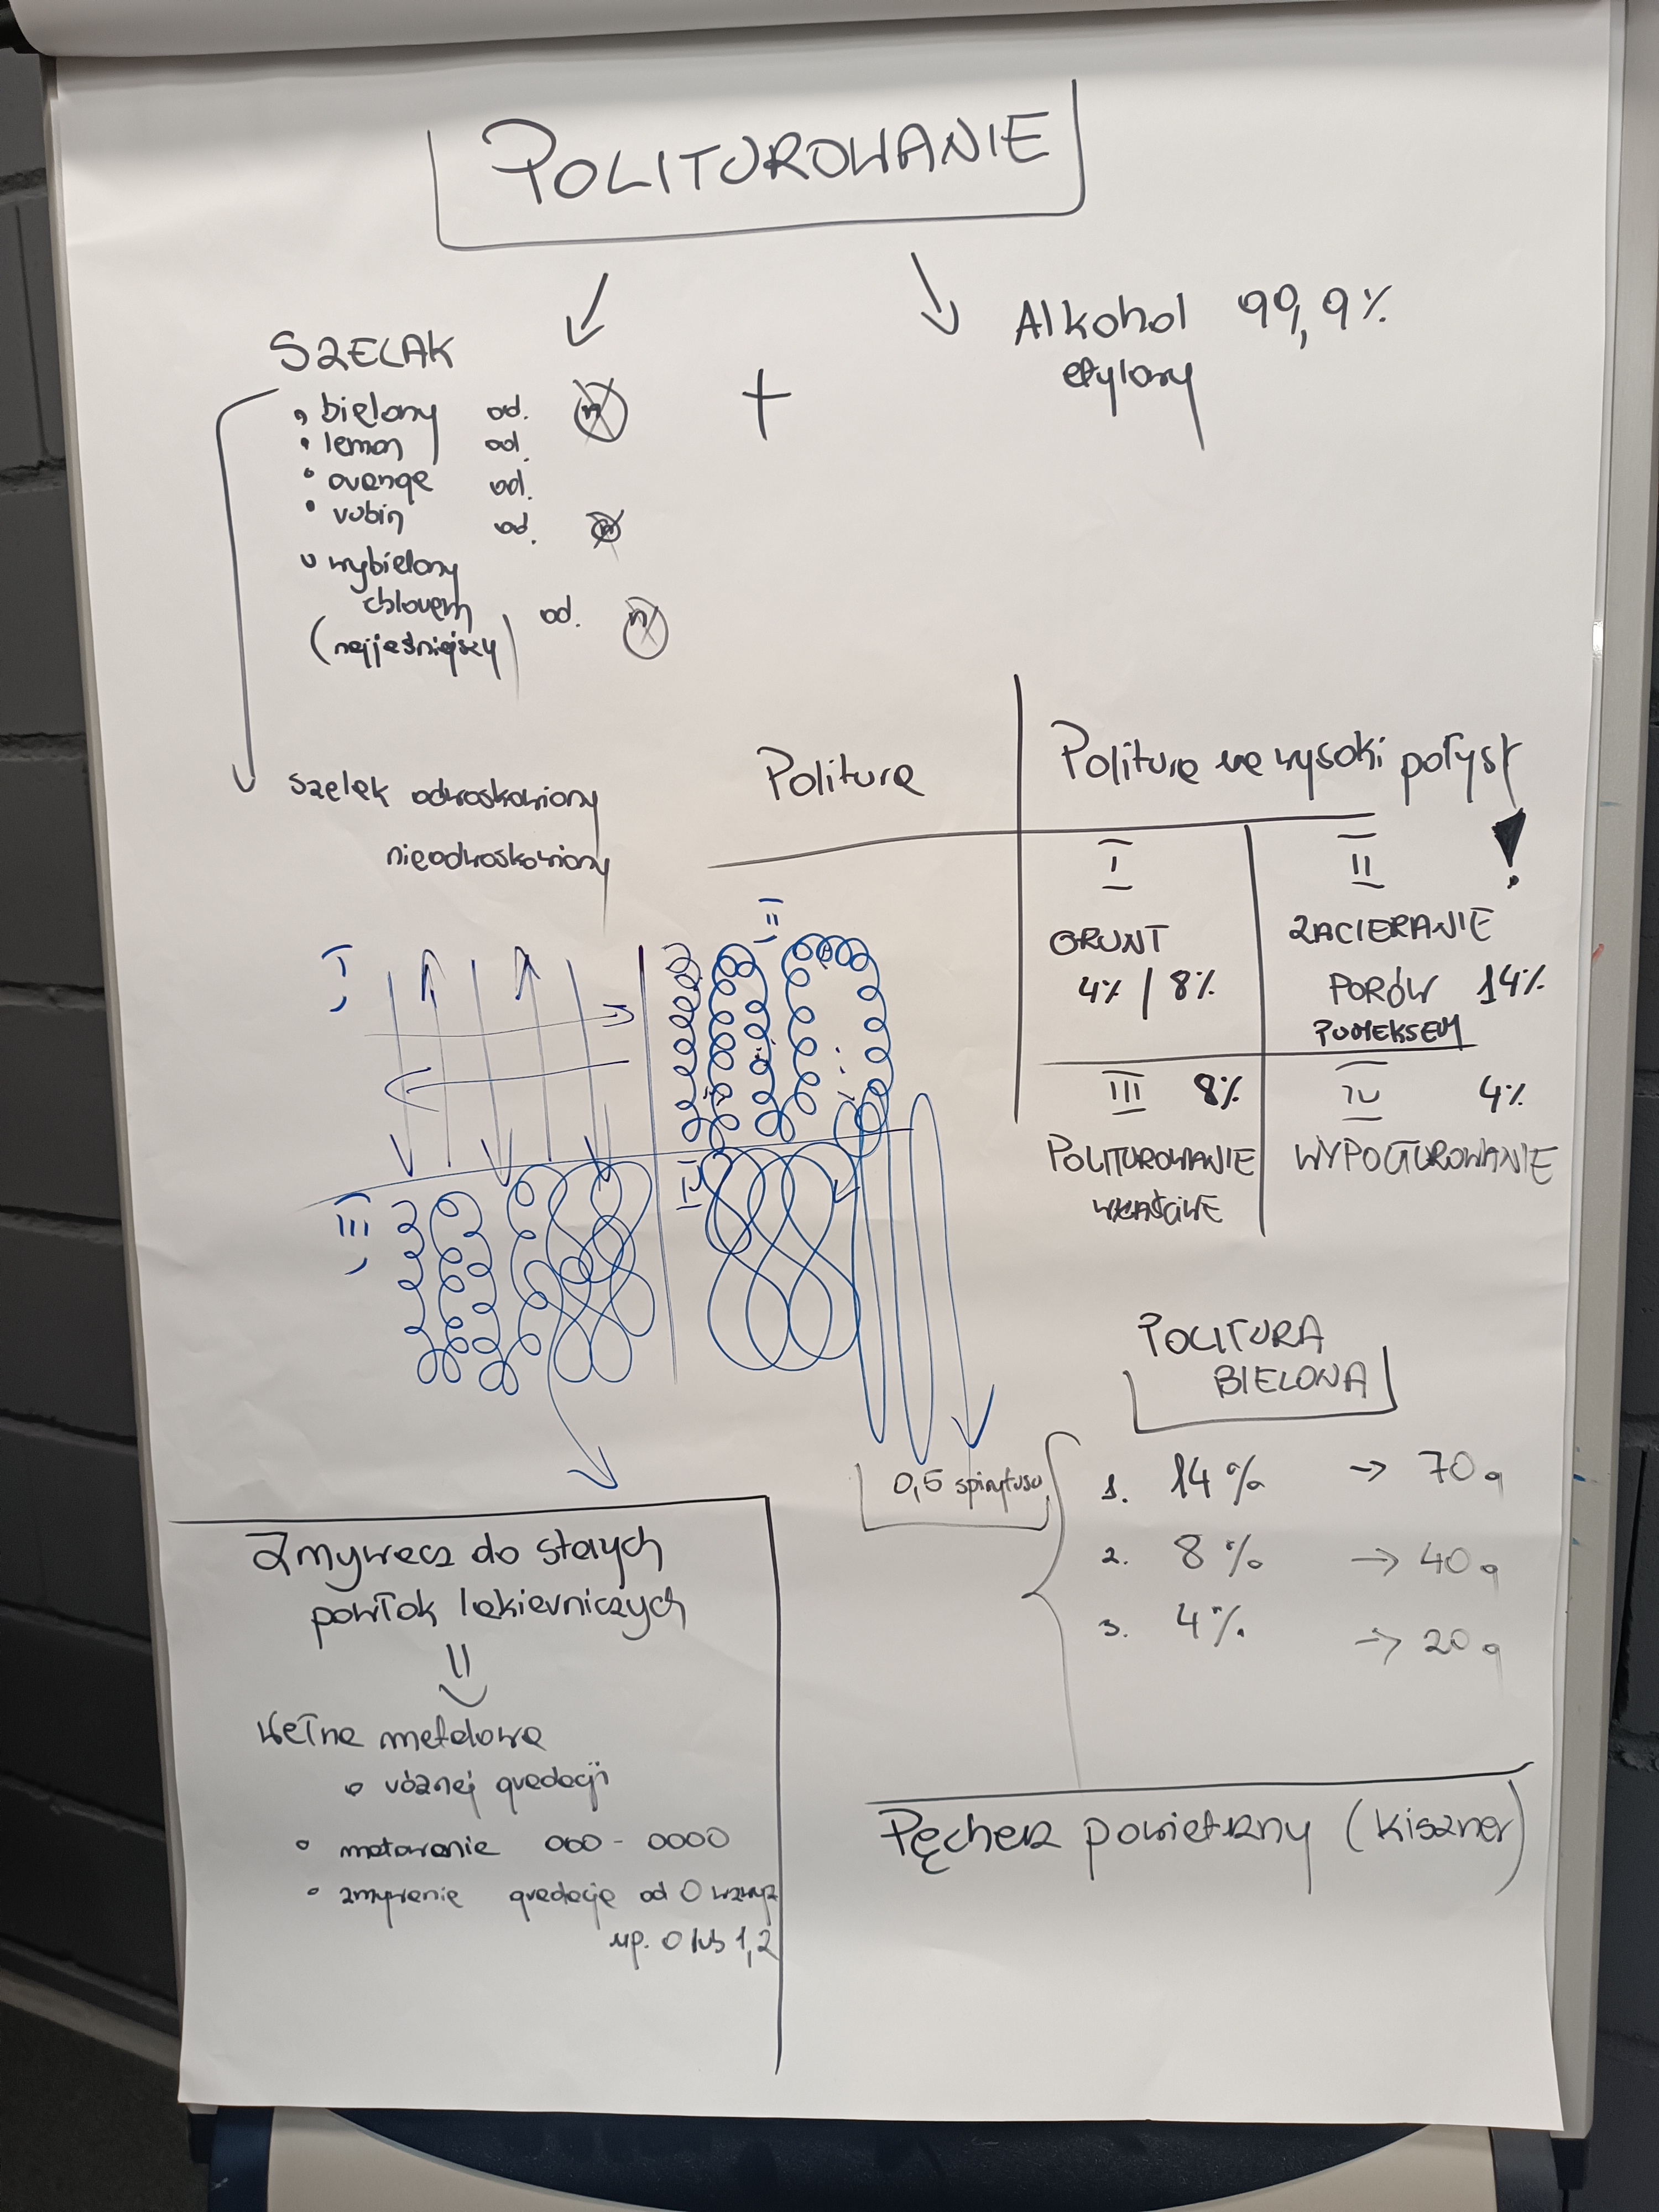 POLITUROWANIE
SZELAK
• bielony od. n
• lemon od.
• orange od.
• rubin od.
• wybielony
chlorem od. n
(najjaśniejszy)
+
Alkohol 99,9%
etylowy
szelak odwoskowiony
nieodwoskowiony
Politura
Politura na wysoki połysk
I
GRUNT
4% / 8%
II !
ZACIERANIE
PORÓW 14%
PUMEKSEM
III 8%
POLITUROWANIE
WŁAŚCIWE
IV 4%
WYPOLUROWANIE
I
II
III
IV
POLITURA
BIELONA
0,5 spirytusu
1. 14% → 70g
2. 8% → 40g
3. 4% → 20g
Zmywacz do starych
powłok lakierniczych
Wełna metalowa
• różnej gradacji
• matowanie 000 - 0000
• zmywanie gradacje od 0 wzwyż
np. 0 lub 1,2
Pęcherz powietrzny (kiszner)